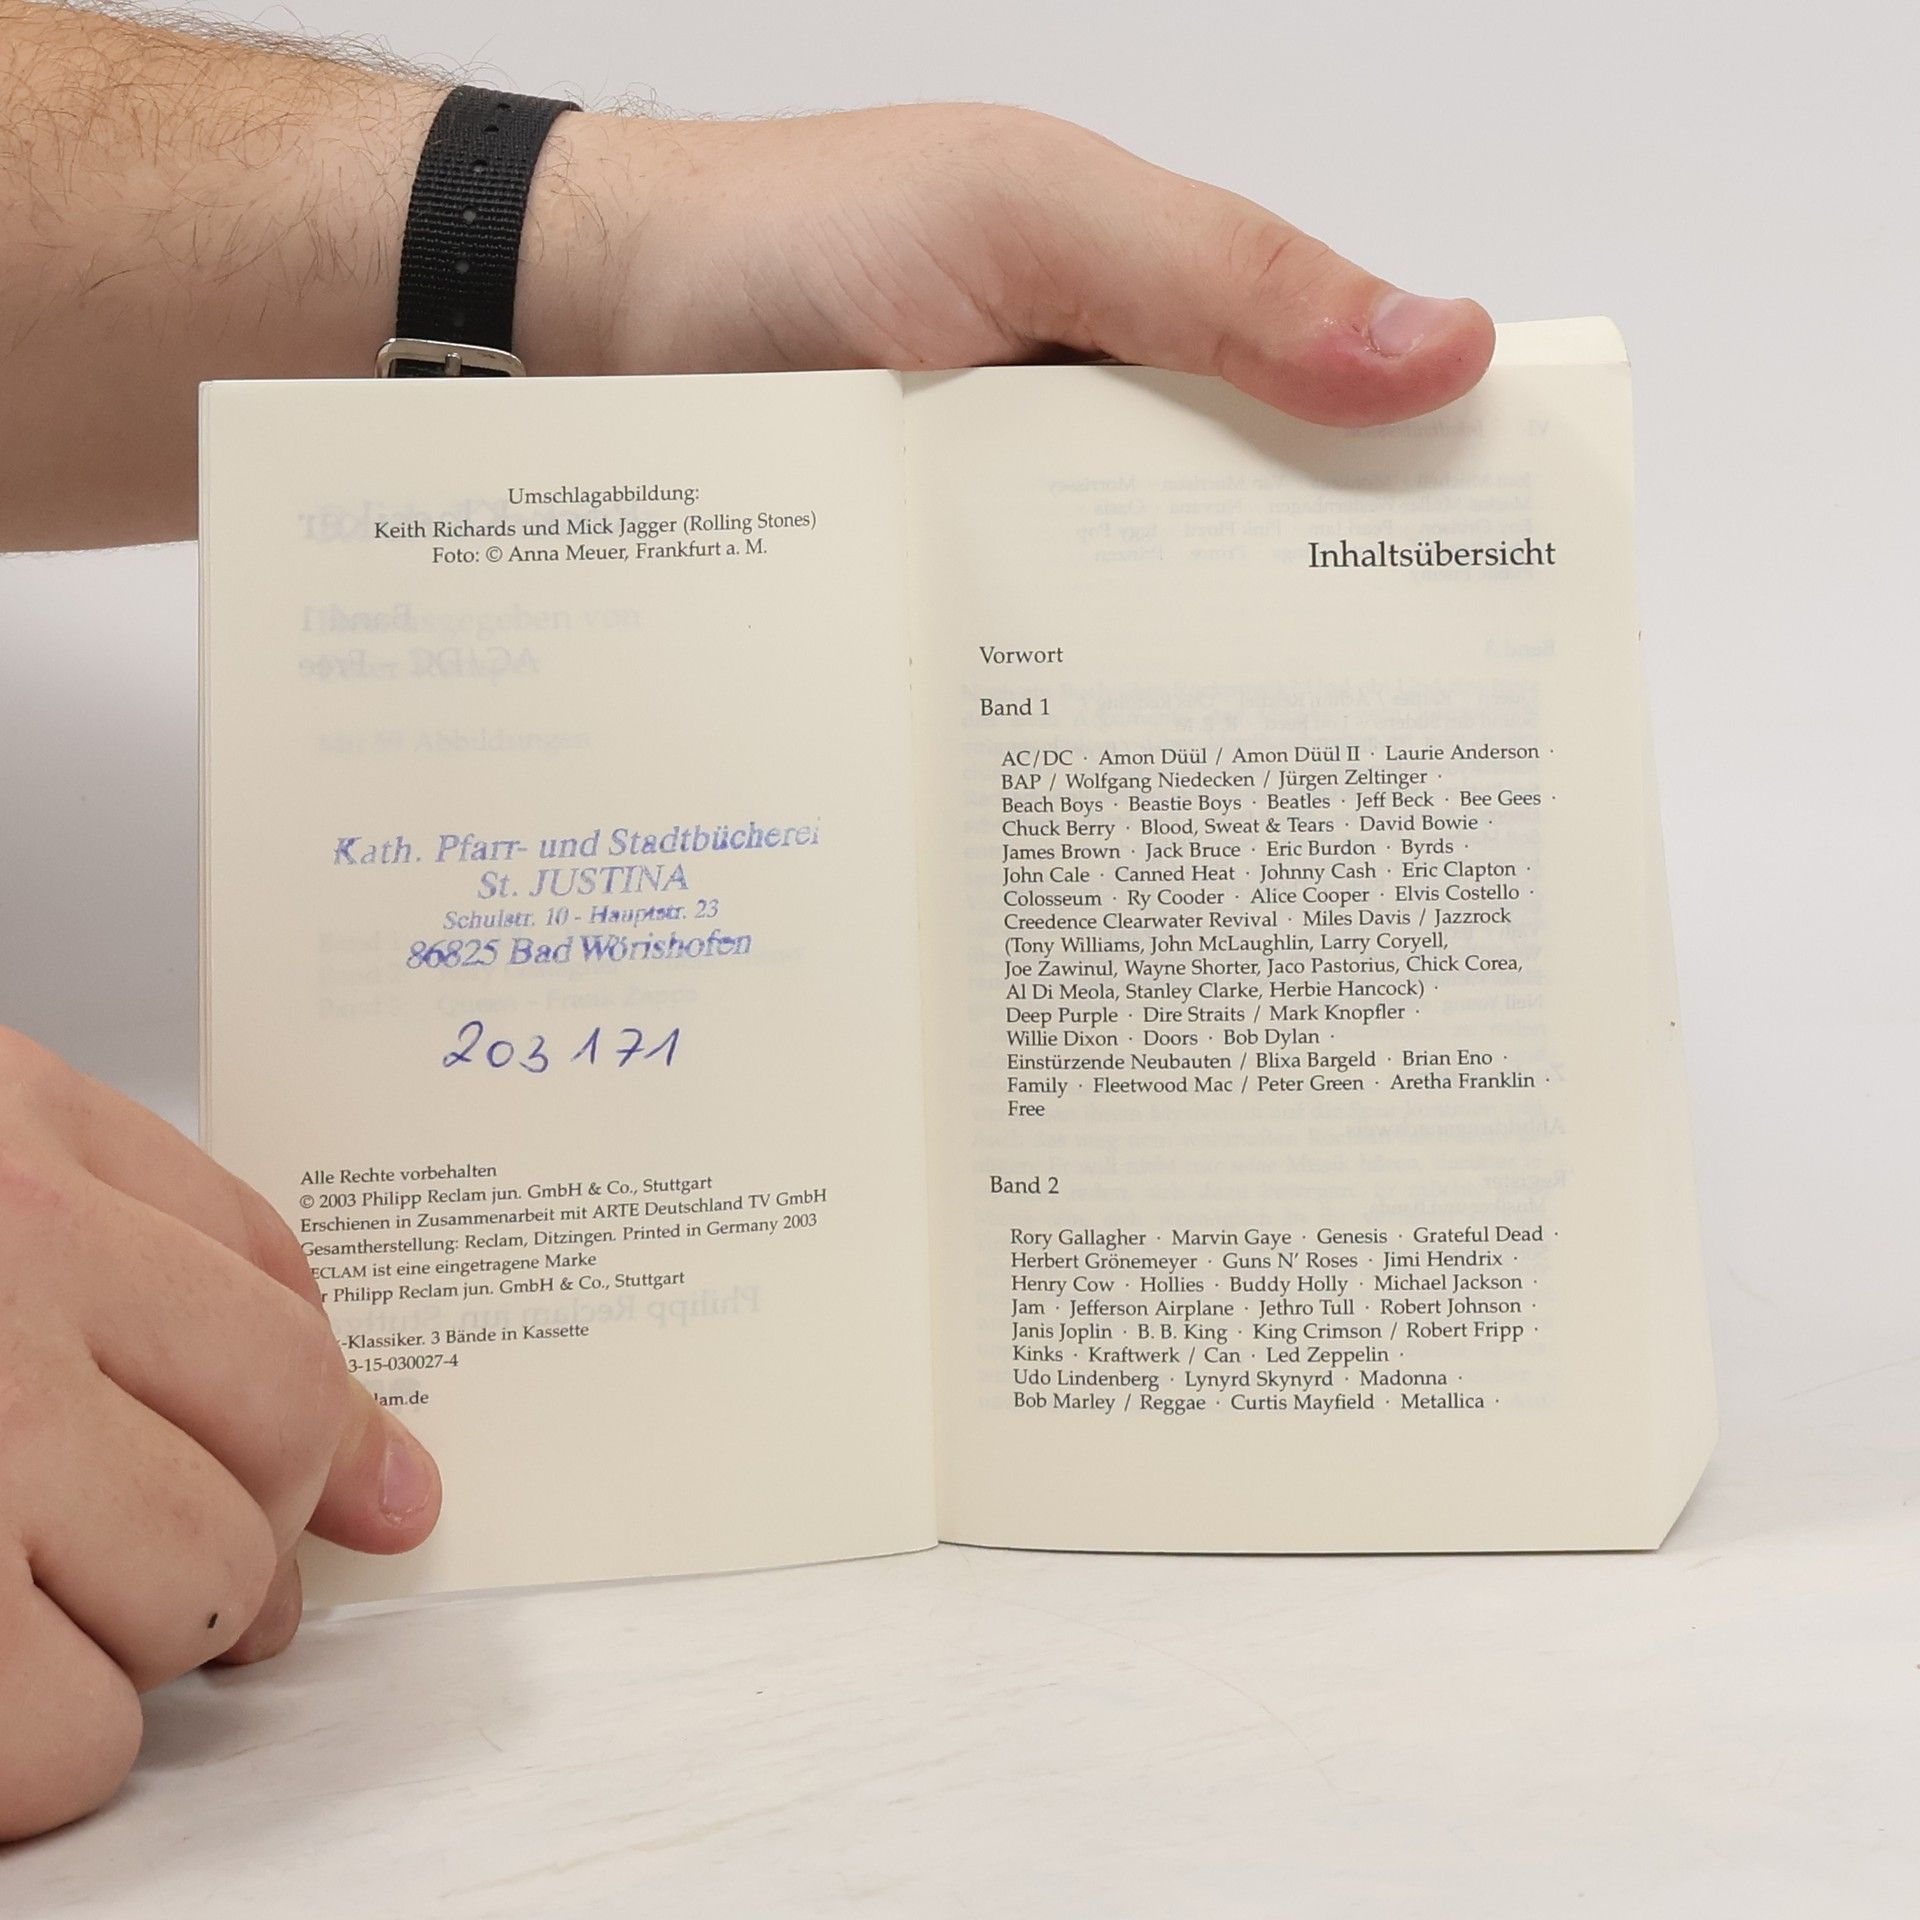 Umschlagabbildung:
Keith Richards und Mick Jagger (Rolling Stones)
Foto: © Anna Meuer, Frankfurt a. M.
Kath. Pfarr- und Stadtbücherei
St. JUSTINA
Schulstr. 10 - Hauptstr. 23
86825 Bad Wörishofen
203 171
Alle Rechte vorbehalten
© 2003 Philipp Reclam jun. GmbH & Co., Stuttgart
Erschienen in Zusammenarbeit mit ARTE Deutschland TV GmbH
Gesamtherstellung: Reclam, Ditzingen. Printed in Germany 2003
ECLAM ist eine eingetragene Marke
r Philipp Reclam jun. GmbH & Co., Stuttgart
-Klassiker. 3 Bände in Kassette
3-15-030027-4
lam.de
Inhaltsübersicht
Vorwort
Band 1
AC/DC · Amon Düül / Amon Düül II · Laurie Anderson ·
BAP / Wolfgang Niedecken / Jürgen Zeltinger ·
Beach Boys · Beastie Boys · Beatles · Jeff Beck · Bee Gees ·
Chuck Berry · Blood, Sweat & Tears · David Bowie ·
James Brown · Jack Bruce · Eric Burdon · Byrds ·
John Cale · Canned Heat · Johnny Cash · Eric Clapton ·
Colosseum · Ry Cooder · Alice Cooper · Elvis Costello ·
Creedence Clearwater Revival · Miles Davis / Jazzrock
(Tony Williams, John McLaughlin, Larry Coryell,
Joe Zawinul, Wayne Shorter, Jaco Pastorius, Chick Corea,
Al Di Meola, Stanley Clarke, Herbie Hancock) ·
Deep Purple · Dire Straits / Mark Knopfler ·
Willie Dixon · Doors · Bob Dylan ·
Einstürzende Neubauten / Blixa Bargeld · Brian Eno ·
Family · Fleetwood Mac / Peter Green · Aretha Franklin ·
Free
Band 2
Rory Gallagher · Marvin Gaye · Genesis · Grateful Dead ·
Herbert Grönemeyer · Guns N’ Roses · Jimi Hendrix ·
Henry Cow · Hollies · Buddy Holly · Michael Jackson ·
Jam · Jefferson Airplane · Jethro Tull · Robert Johnson ·
Janis Joplin · B. B. King · King Crimson / Robert Fripp ·
Kinks · Kraftwerk / Can · Led Zeppelin ·
Udo Lindenberg · Lynyrd Skynyrd · Madonna ·
Bob Marley / Reggae · Curtis Mayfield · Metallica ·